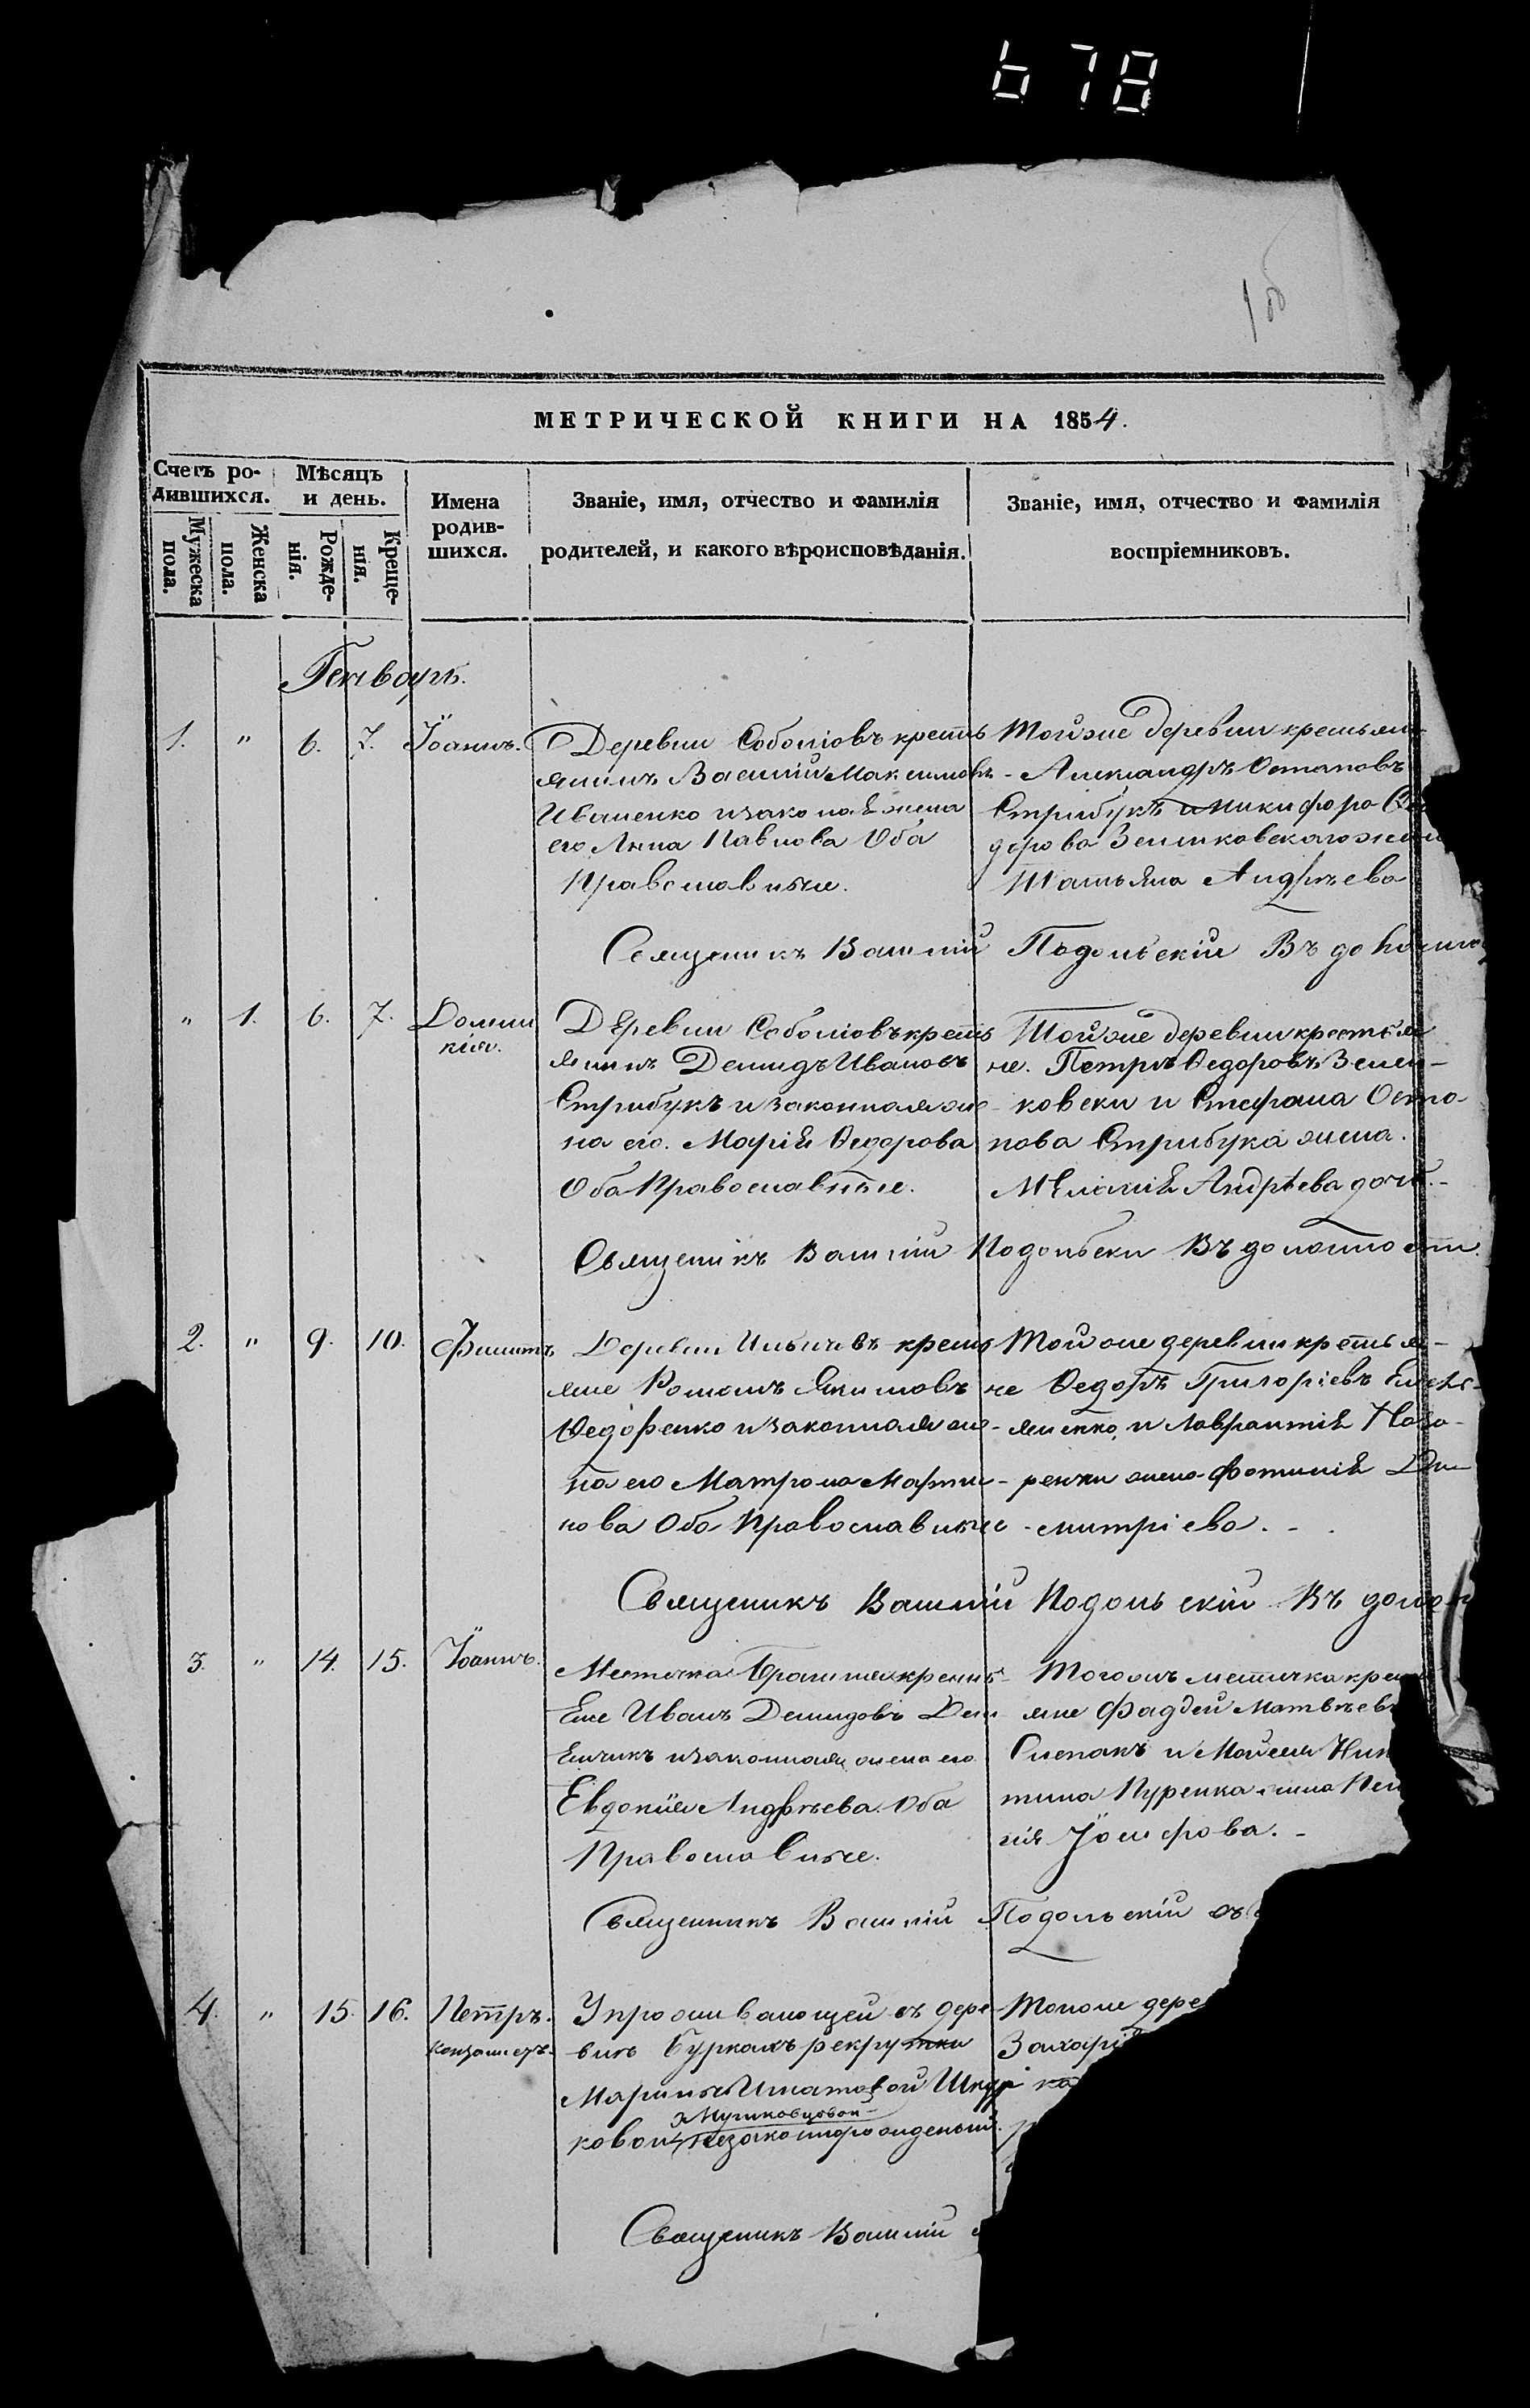 678
МЕТРИЧЕСКОЙ КНИГИ НА 1854.
Счетъ ро-
дившихся.
Мужеска
пола.
Женска
пола.
Мѣсяцъ
и день.
Рожде-
нія.
Креще-
нія.
Имена
родив-
шихся.
Званіе, имя, отчество и фамилія
родителей, и какого вѣроисповѣданія.
Званіе, имя, отчество и фамилія
воспріемниковъ.
Генварь.
1. " 6. 7. Іоаннъ.
Деревни Соболіовъ кресть
янинъ Василій Максимовъ
Иваненко и законая жена
его Анна Павлова Оба
Православные.
Тойже деревни крестьян-
Александръ Остаповъ
Стрибукъ и Никифора Ѳе
дорова Зенинковскаго жена
Татьяна Андрѣева
Священикъ Василій Подольскій Въ
" 1. 6. 7. Домни
кія.
Деревни Соболіовъ кресть
янинъ Демидъ Ивановъ
Стрибукъ и законная же-
на его. Марія Ѳедорова
Оба Православные.
Тойже деревни крестья
не. Петръ Ѳедоровъ Зенин-
ковски и Стефана Оста-
пова Стрибука жена.
Меланія Андрѣева дочь.-
Священикъ Василій Подольски Въ
2. " 9. 10. Филиппъ
Деревни Ильичъ кресть
яне Романъ Якимовъ
Ѳедоренко и законная же-
на его Матрона Марти-
нова Оба Православные
Той же деревни крестья-
не Ѳедоръ Григоріевъ
и Лаврентія Наза-
ренки жена Фотинія Ди-
митріева.
Священикъ Василій Подольскій Въ
3. " 14. 15. Іоаннъ.
Местечка Брагиня кресть-
яне Иванъ Демидовъ
и законная жена его
Евдокія Андрѣева. Оба
Православные.
Тогожъ местечка кресть
яне Фаддей Матвѣевъ
Слепакъ и Моисея Ники
тина Пуренка жена
гія Іосифова.-
Священникъ Василій Подольскій
4. " 15. 16. Петръ.
Упроживающей въ дере-
внѣ Буркахъ рекрутки
Марины Игнатовой Шкур
ковой незаконнорожденый.
Тойже дере
Захарі
Священикъ Василій